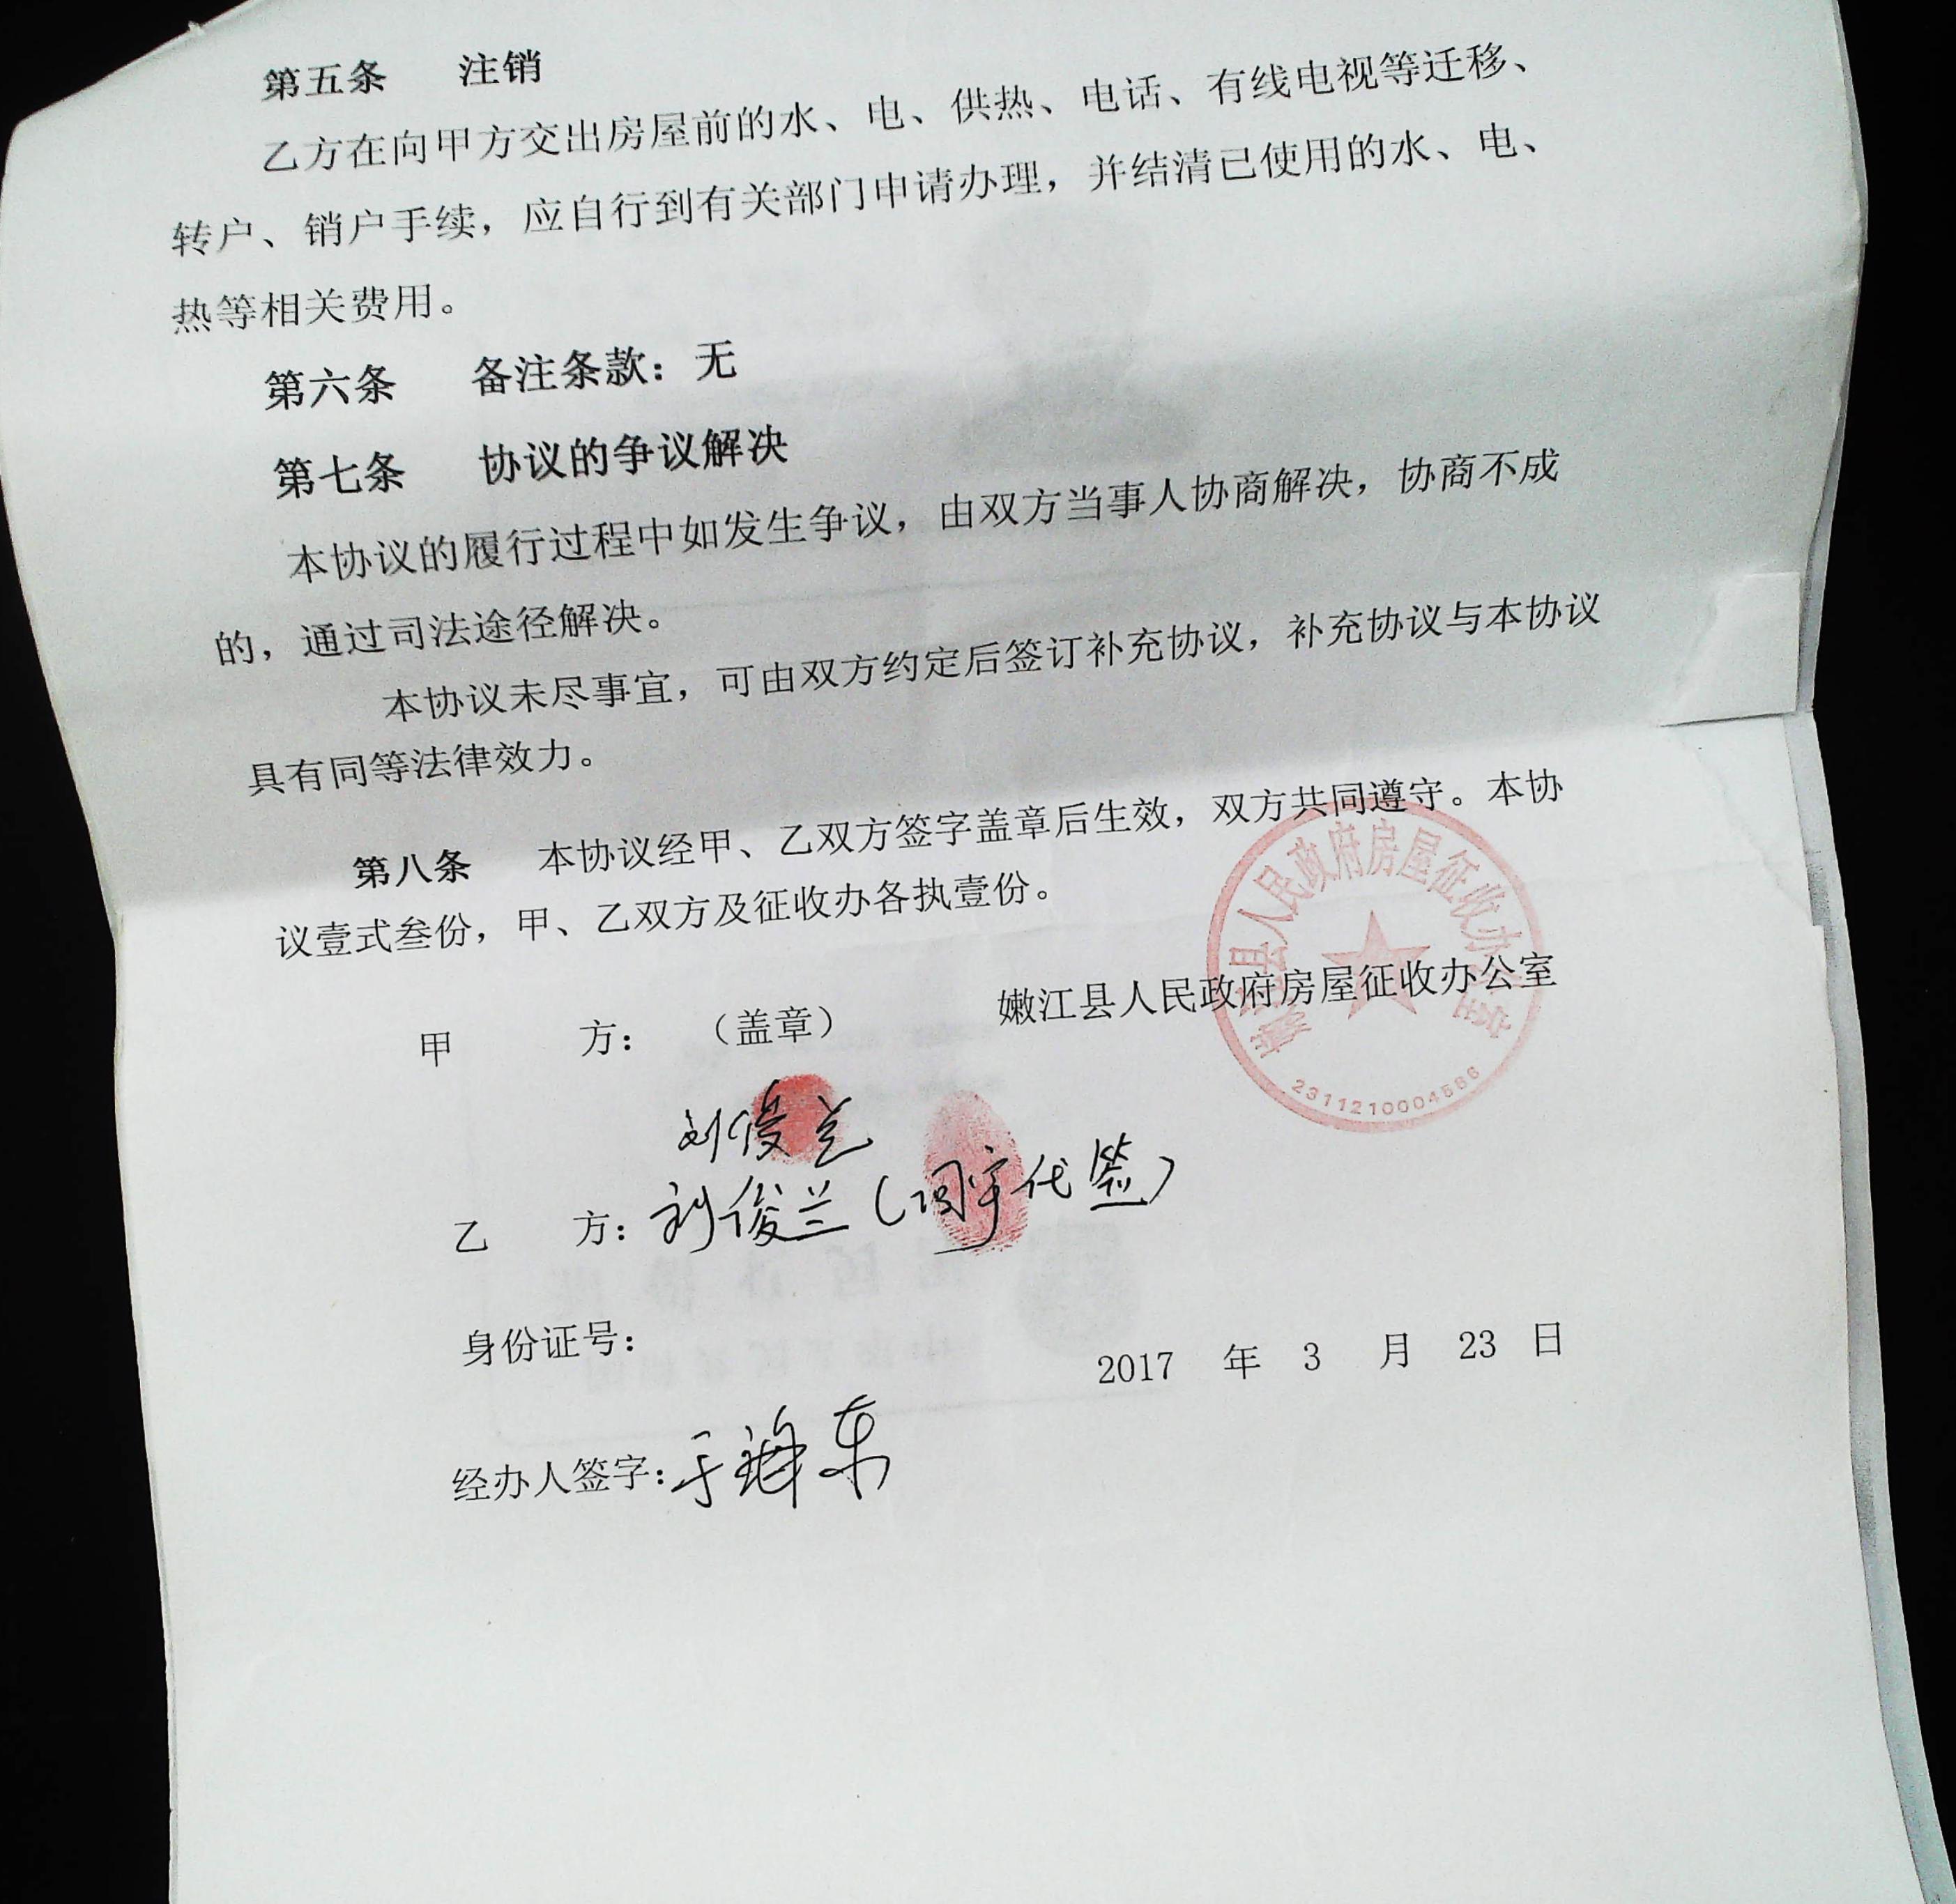 第五条 注销
乙方在向甲方交出房屋前的水、电、供热、电话、有线电视等迁移、
转户、销户手续，应自行到有关部门申请办理，并结清已使用的水、电、
热等相关费用。
第六条 备注条款：无
第七条 协议的争议解决
本协议的履行过程中如发生争议，由双方当事人协商解决，协商不成
的，通过司法途径解决。
本协议未尽事宜，可由双方约定后签订补充协议，补充协议与本协议
具有同等法律效力。
第八条 本协议经甲、乙双方签字盖章后生效，双方共同遵守。本协
议壹式叁份，甲、乙双方及征收办各执壹份。
甲 方：（盖章） 嫩江县人民政府房屋征收办公室
嫩江县人民政府房屋征收办公室
2311210004586
刘俊兰
乙 方：刘俊兰（ 宇代签）
身份证号：
2017 年 3 月 23 日
经办人签字：于 东